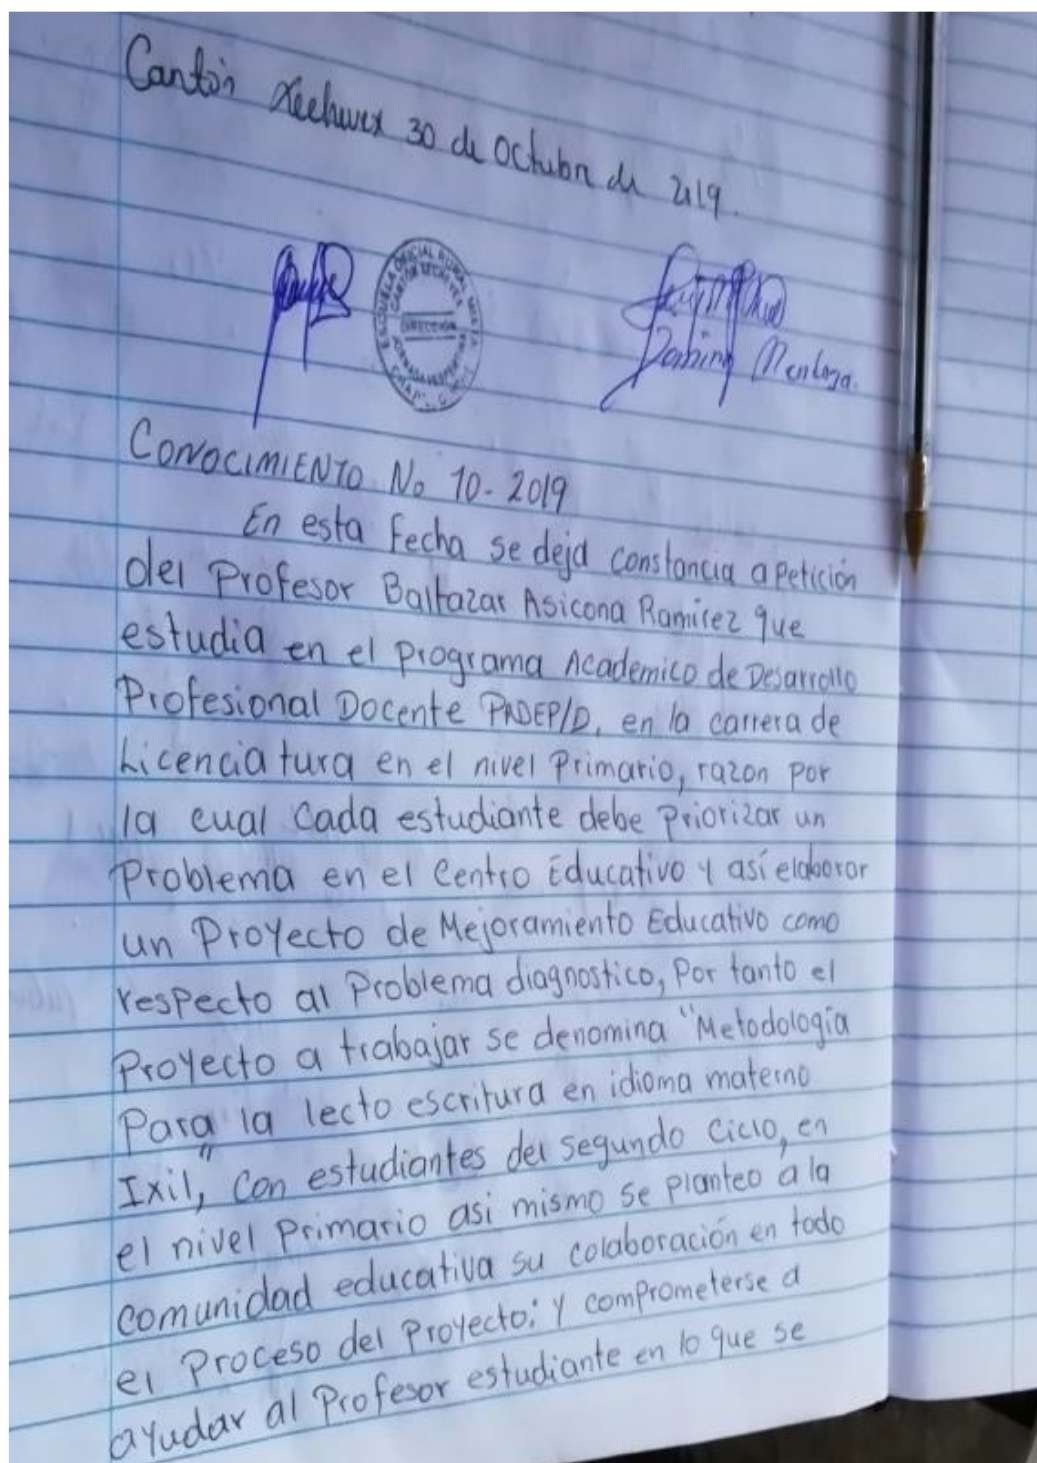 Cantón Xechuex 30 de Octubre de 2019.
ESCUELA OFICIAL RURAL MIXTA
CANTÓN
DIRECCION
JORNADA VESPERTINA
Domingo Mendoza.
CONOCIMIENTO No 10-2019
En esta Fecha se deja constancia a Petición
del Profesor Baltazar Asicona Ramirez que
estudia en el Programa Academico de Desarrollo
Profesional Docente PADEP/D, en la carrera de
Licenciatura en el nivel Primario, razon por
la cual Cada estudiante debe Priorizar un
Problema en el Centro Educativo y así elaboror
un Proyecto de Mejoramiento Educativo como
respecto al Problema diagnostico, Por tanto el
Proyecto a trabajar se denomina "Metodología
Para la lecto escritura en idioma materno
Ixil," Con estudiantes del segundo Ciclo, en
el nivel Primario asi mismo se Planteo a la
comunidad educativa su colaboración en todo
el Proceso del Proyecto; y comprometerse a
ayudar al Profesor estudiante en lo que se